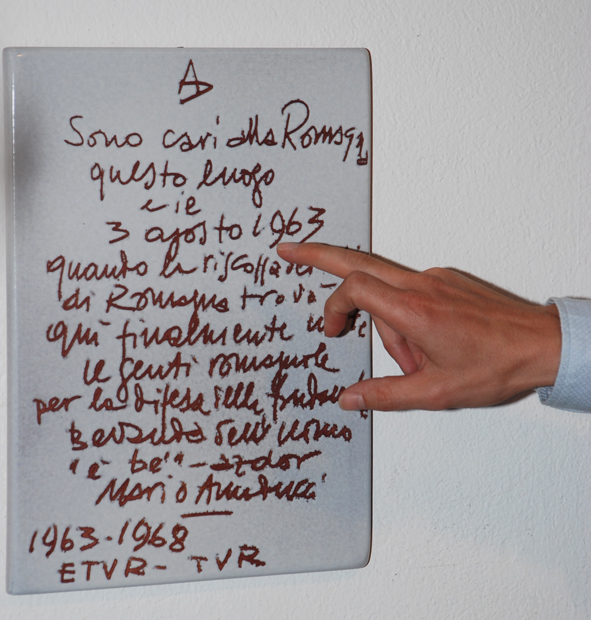 A
Sono cari alla Romagna
questo luogo
e ie
3 agosto 1963
quando la riscossa
di Romagna trovà
qui finalmente
le genti romagnole
per la difesa della
bevanda dell'uomo
"e' be'" - azdor
Mario
1963-1968
ETVR - TVR